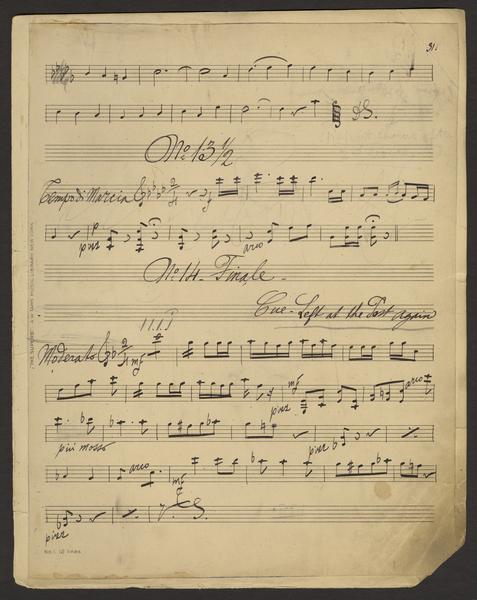 31.
D.S.
No. 13 1/2
Tempo di Marcia
pizz
arco
No. 14 - Finale -
Cue - Left at the Post again
Moderato mf
mf
pizz arco
piu mosso pizz
arco mf
pizz V.S.
No. 1. 12 lines.